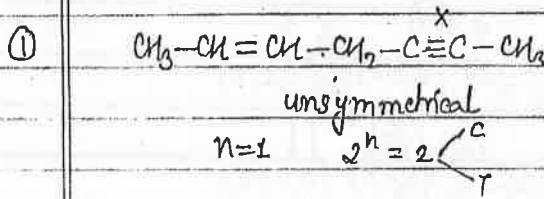 ① CH₃-CH=CH-CH₂-C≡C-CH₃
X
unsymmetrical
n=1 2ⁿ = 2
C
T